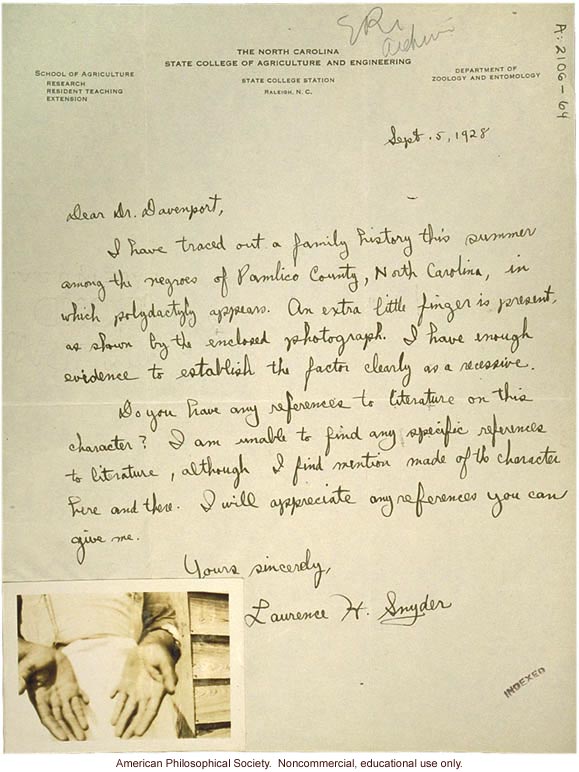 ERO
Archives
A:2106-64
THE NORTH CAROLINA
STATE COLLEGE OF AGRICULTURE AND ENGINEERING
STATE COLLEGE STATION
RALEIGH, N. C.
SCHOOL OF AGRICULTURE
RESEARCH
RESIDENT TEACHING
EXTENSION
DEPARTMENT OF
ZOOLOGY AND ENTOMOLOGY
Sept. 5, 1928
Dear Dr. Davenport,
I have traced out a family history this summer
among the negroes of Pamlico County, North Carolina, in
which polydactyly appears. An extra little finger is present,
as shown by the enclosed photograph. I have enough
evidence to establish the factor clearly as a recessive.
Do you have any references to literature on this
character? I am unable to find any specific references
to literature, although I find mention made of the character
here and there. I will appreciate any references you can
give me.
Yours sincerely,
Laurence H. Snyder
INDEXED
American Philosophical Society. Noncommercial, educational use only.